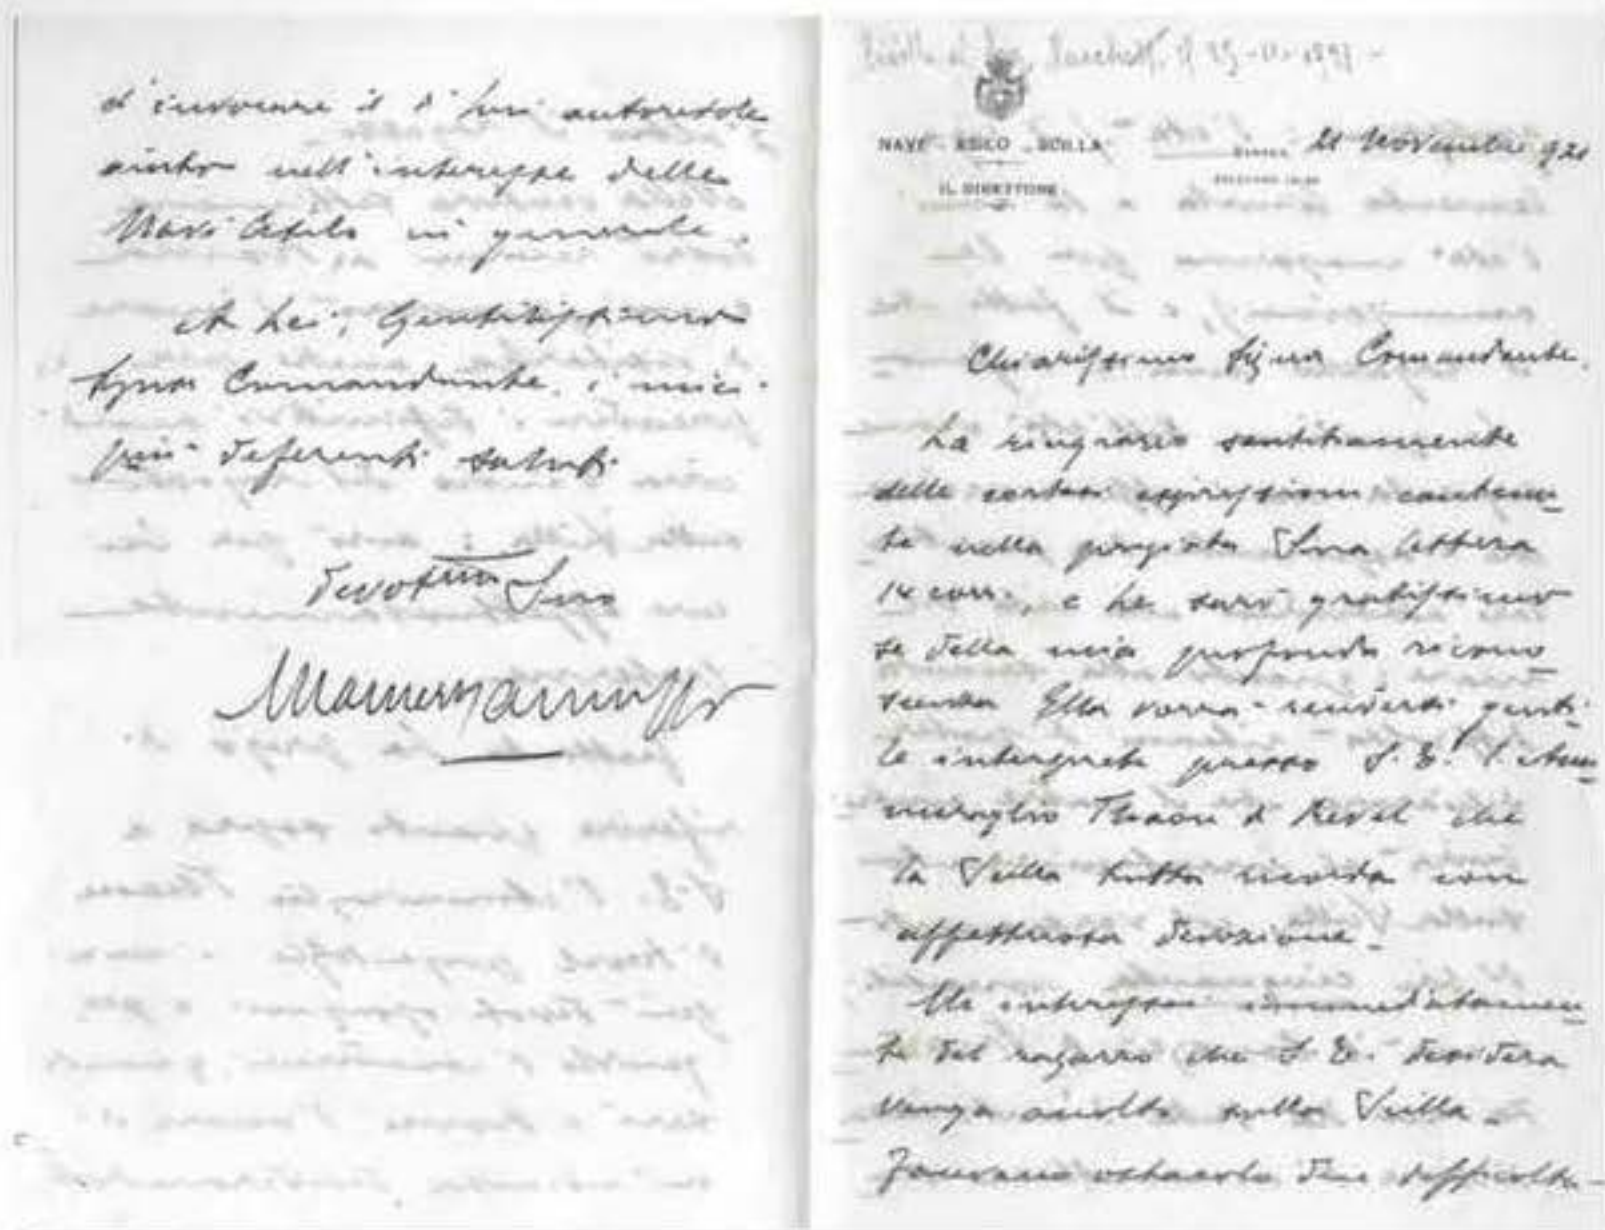 d'invocare il di Lui autorevole
aiuto nell'interesse delle
Navi Asilo in generale.
A Lei, Gentilissimo
Signor Comandante, i miei
più deferenti saluti
Devotmo Suo
21 Novembre 921
NAVE - ASILO - SCILLA
IL DIRETTORE
Chiarissimo Signor Comandante.
La ringrazio sentitamente
delle cortesi espressioni contenu_
te nella pregiata Sua lettera
14 corr., e Le sarò gratissimo
se della mia profonda ricono_
scenza Ella vorrà rendersi genti_
le interprete presso S. E. l'Am_
miraglio Thaon di Revel che
la Scilla tutta ricorda con
affettuosa devozione.
Mi interessai immediatamen_
te del ragazzo che S. E. desidera
venga accolto sulla Scilla.
Facevano ostacolo due difficoltà